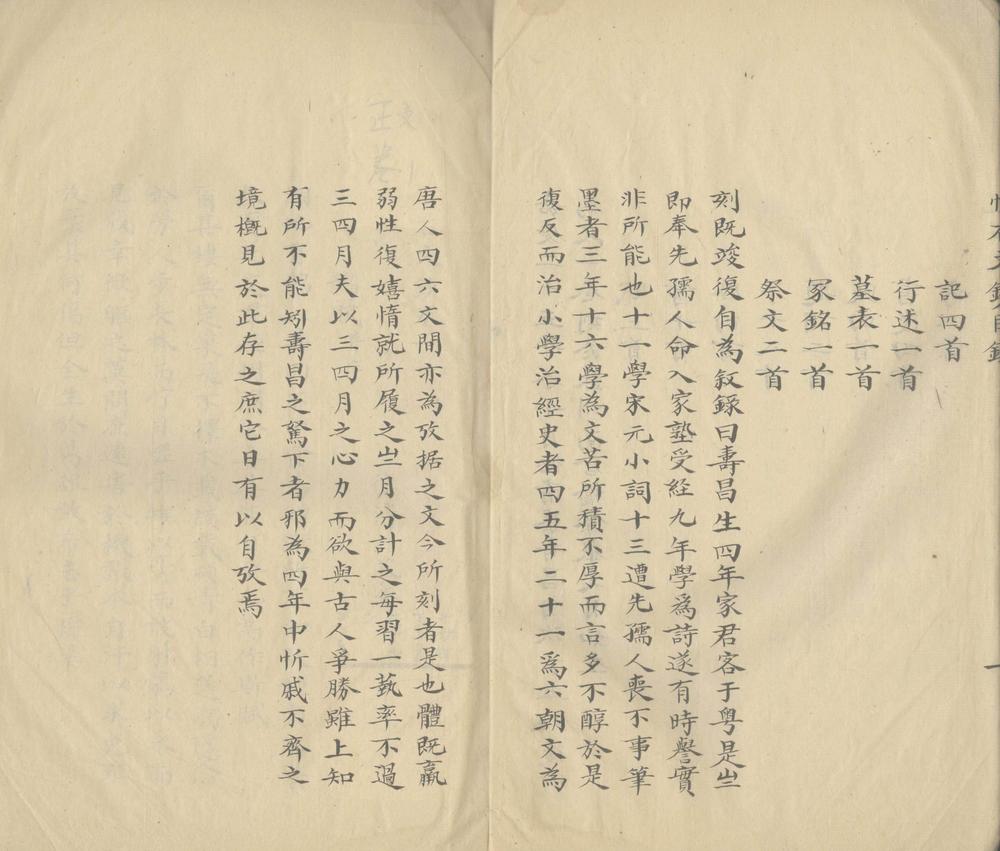 記四首
行述一首
墓表一首
冢銘一首
祭文二首
刻既竣復自為敘錄曰壽昌生四年家君客于粵是歲
即奉先孺人命入家塾受經九年學為詩遂有時譽實
非所能也十一學宋元小詞十三遭先孺人喪不事筆
墨者三年十六學為文苦所積不厚而言多不醇於是
復反而治小學治經史者四五年二十一為六朝文為
唐人四六文間亦為攷据之文今所刻者是也體既羸
弱性復嬉惰就所履之歲月分計之每習一蓺率不過
三四月夫以三四月之心力而欲與古人爭勝雖上知
有所不能矧壽昌之駑下者邪為四年中忻戚不齊之
境概見於此存之庶它日有以自攷焉